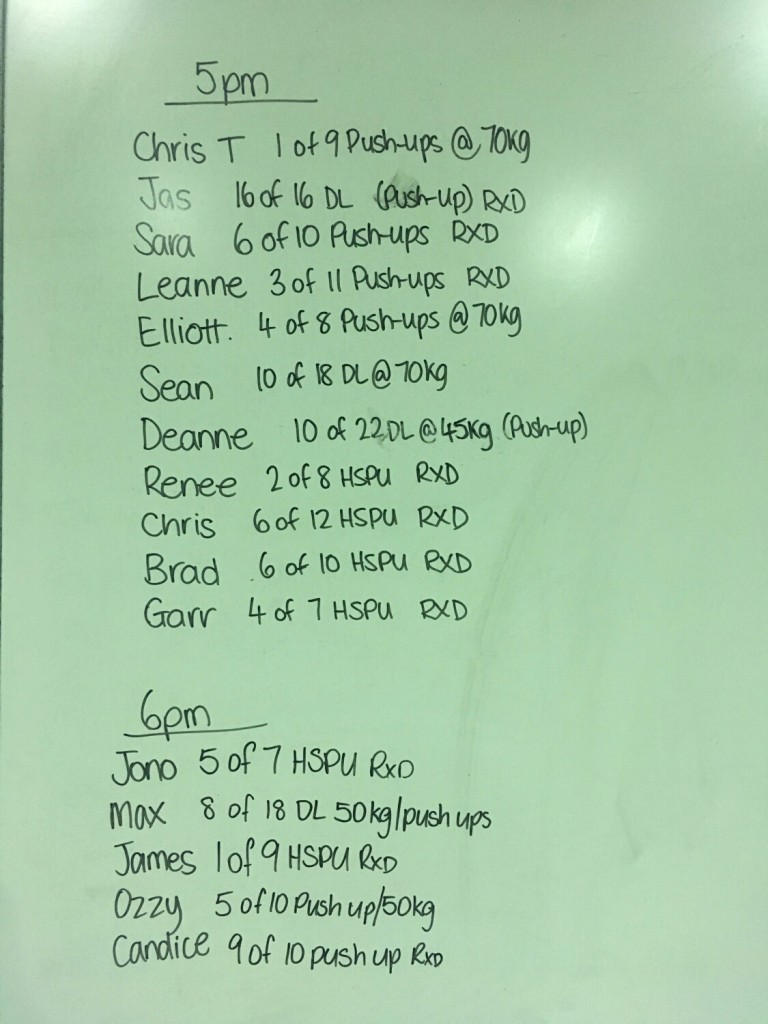 5pm
Chris T 1 of 9 Push-ups @ 70kg
Jas 16 of 16 DL (Push-Up) RXD
Sara 6 of 10 Push-ups RXD
Leanne 3 of 11 Push-ups RXD
Elliott. 4 of 8 Push-ups @ 70kg
Sean 10 of 18 DL @ 70kg
Deanne 10 of 22 DL @ 45kg (Push-up)
Renee 2 of 8 HSPU RXD
Chris 6 of 12 HSPU RXD
Brad 6 of 10 HSPU RXD
Garr 4 of 7 HSPU RXD
6pm
Jono 5 of 7 HSPU RxD
Max 8 of 18 DL 50kg/push ups
James 1 of 9 HSPU RxD
Ozzy 5 of 10 Push up/50kg
Candice 9 of 10 push up RxD